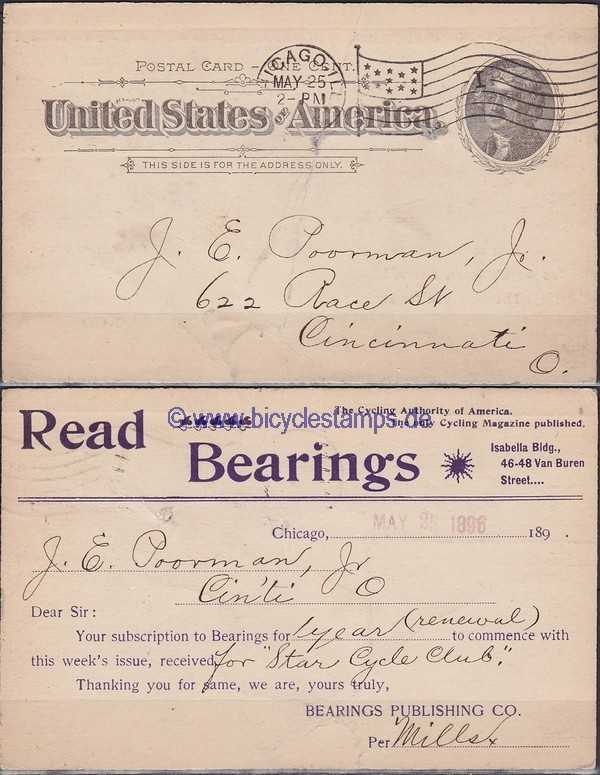 POSTAL CARD – ONE CENT.
CHICAGO, ILL
MAY 25
2- PM
1
United States of America.
THIS SIDE IS FOR THE ADDRESS ONLY.
J. E. Poorman, Jr.
622 Race St
Cincinnati
O.
© www.bicyclestamps.de
The Cycling Authority of America.
The only Cycling Magazine published.
Read
Bearings
Isabella Bldg.,
46-48 Van Buren
Street....
Chicago, MAY 25 1896 189 .
J. E. Poorman, Jr
Cin'ti O
Dear Sir:
Your subscription to Bearings for 1 year (renewal) to commence with
this week's issue, received for "Star Cycle Club".
Thanking you for same, we are, yours truly,
BEARINGS PUBLISHING CO.
Per Mills